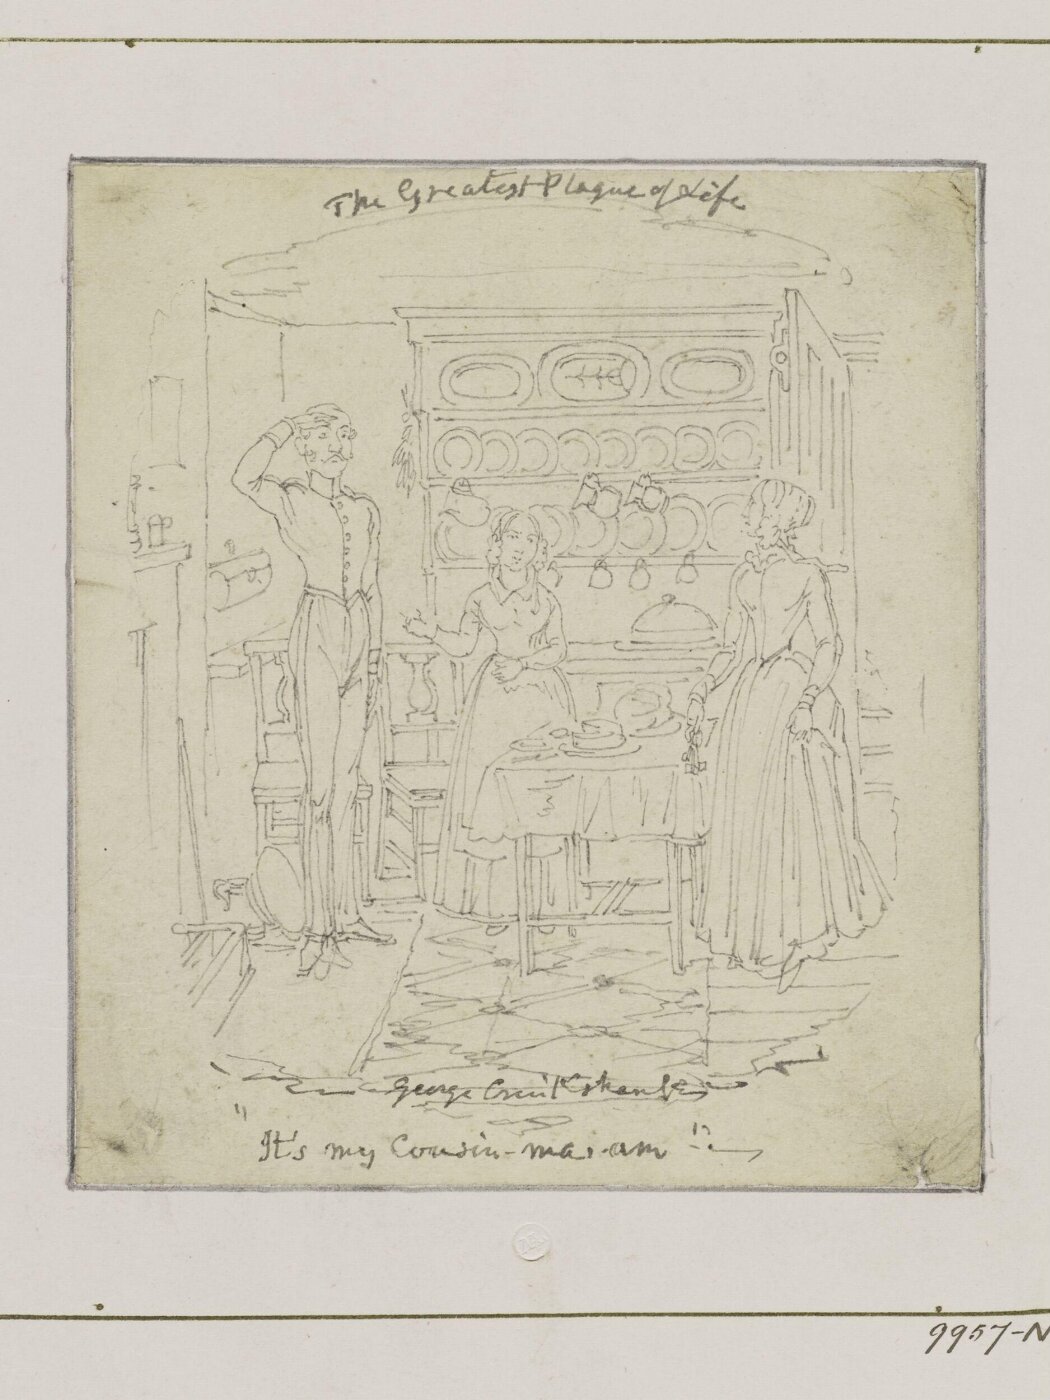 The Greatest Plague of Life
George Cruikshank
"It's my Cousin-ma-am"!
9957-N